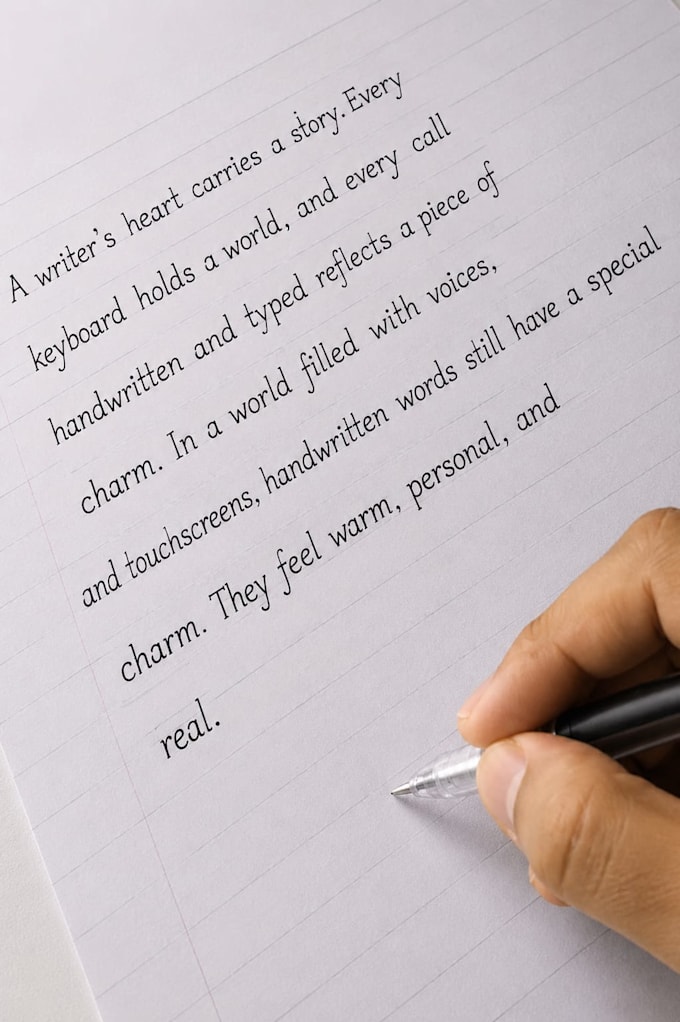 A writer's heart carries a story. Every
keyboard holds a world, and every call
handwritten and typed reflects a piece of
charm. In a world filled with voices,
and touchscreens, handwritten words still have a special
charm. They feel warm, personal, and
real.